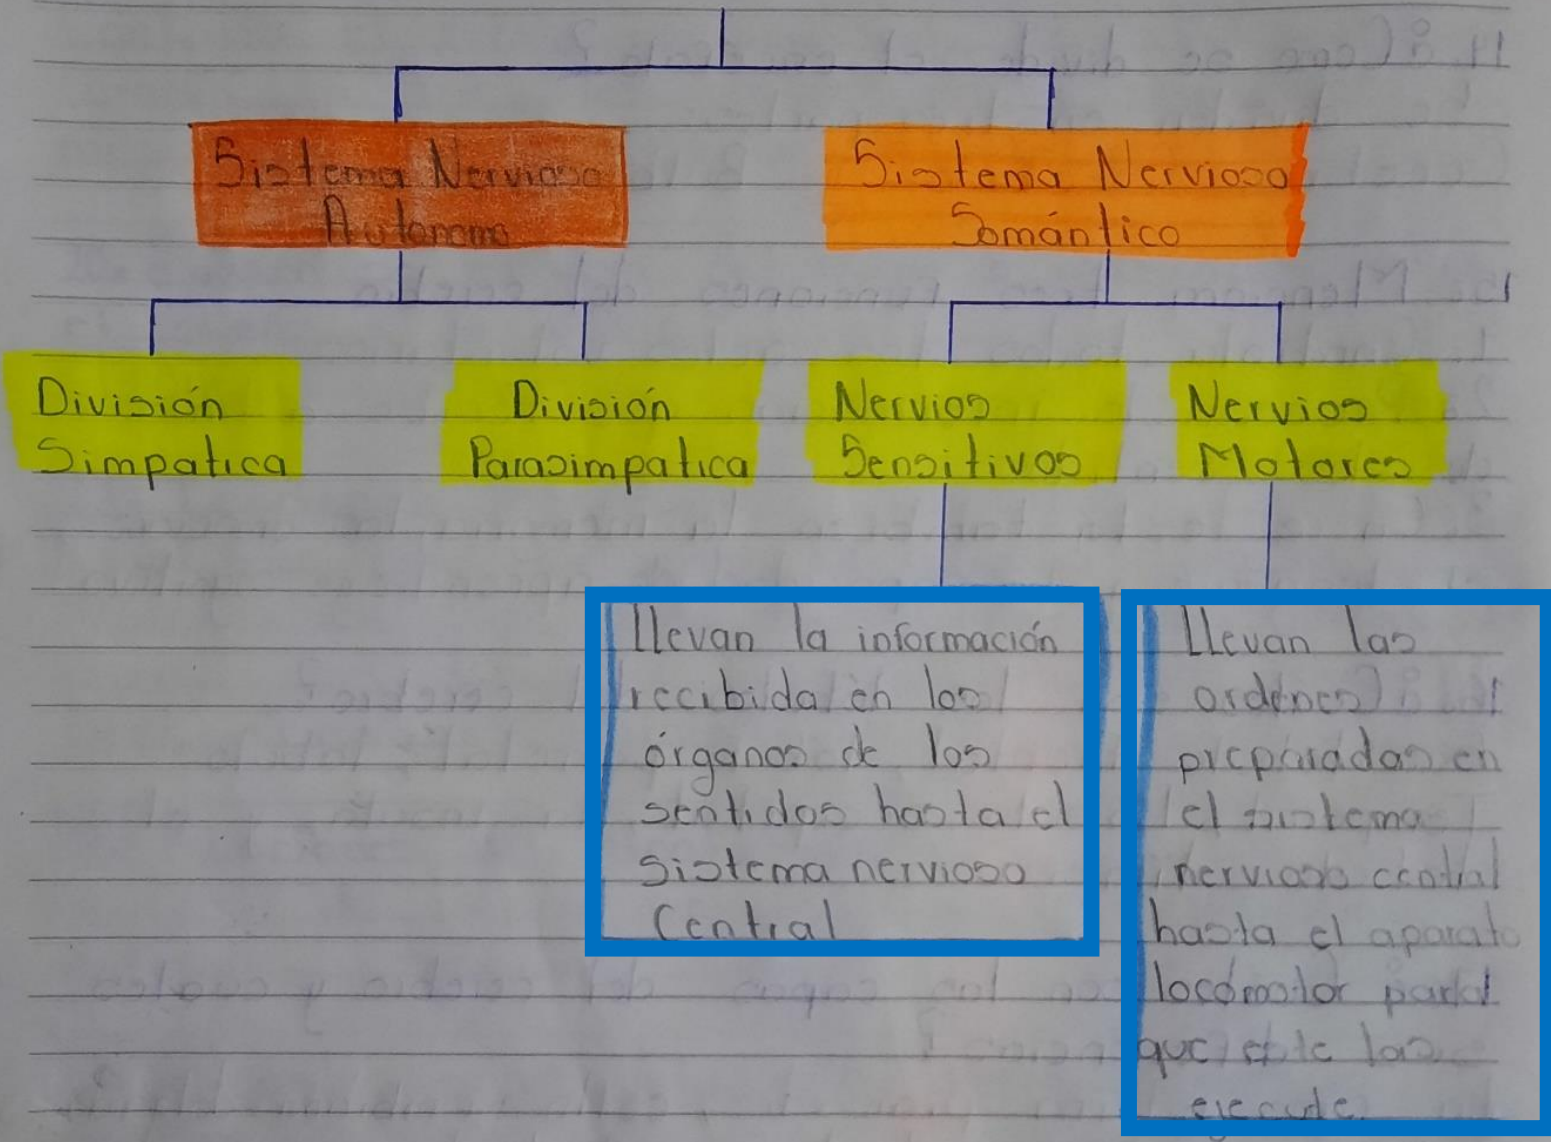 Sistema Nervioso
Autonomo
Sistema Nervioso
Somántico
División
Simpatica
División
Parasimpatica
Nervios
Sensitivos
Nervios
Motores
llevan la información
recibida en los
órganos de los
sentidos hasta el
sistema nervioso
Central
Llevan las
ordenes
preparadas en
el sistema
nervioso central
hasta el aparato
locomotor para
que este las
ejecute.